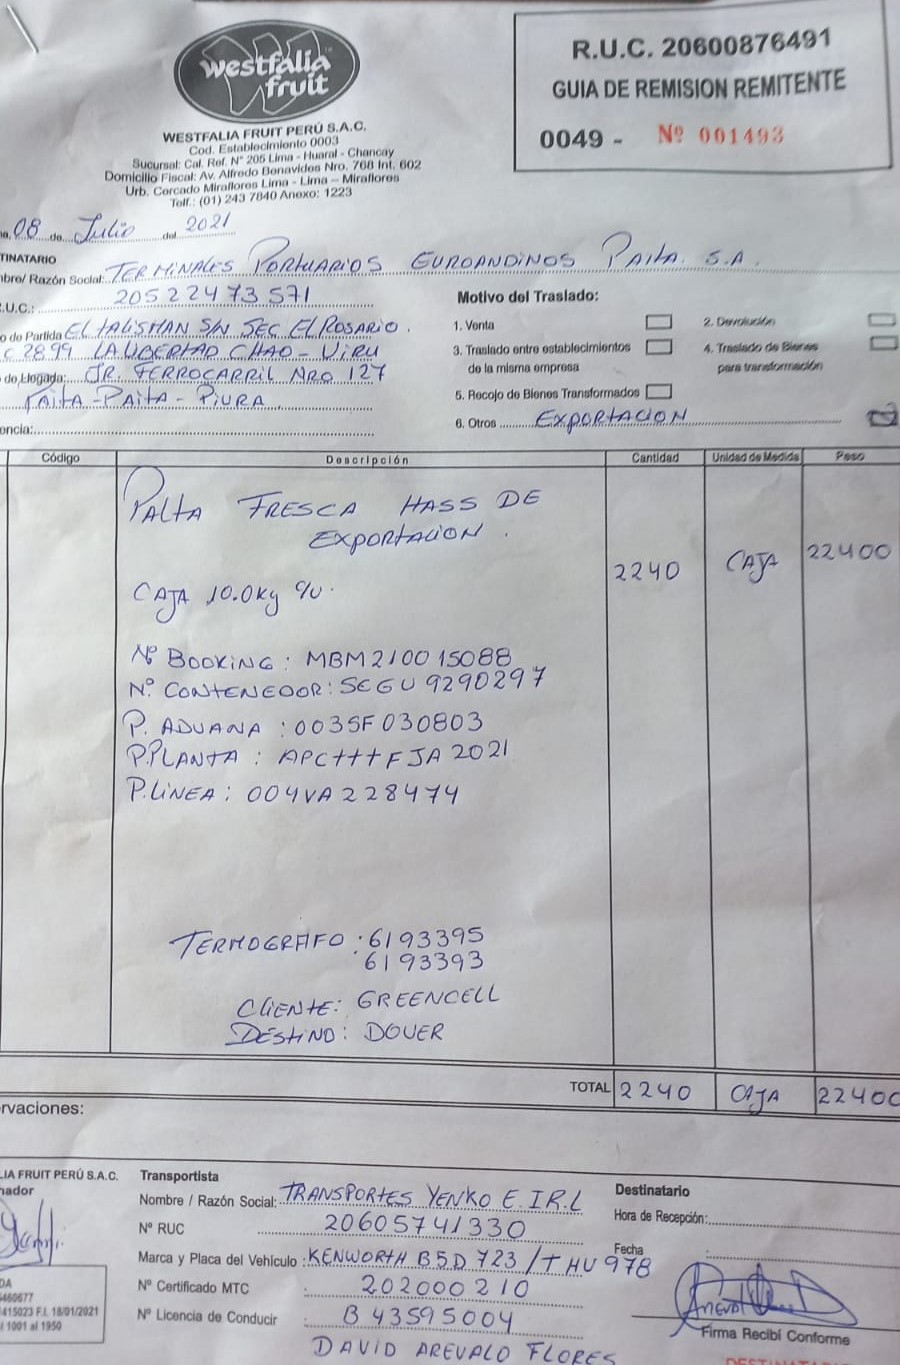 westfalia
fruit
WESTFALIA FRUIT PERÚ S.A.C.
Cod. Establecimiento 0003
Sucursal: Cal. Ref. N° 205 Lima - Huaral - Chancay
Domicilio Fiscal: Av. Alfredo Benavides Nro. 768 Int. 602
Urb. Cercado Miraflores Lima - Lima – Miraflores
Telf.: (01) 243 7840 Anexo: 1223
R.U.C. 20600876491
GUIA DE REMISION REMITENTE
0049 - Nº 001493
08 de Julio del 2021
TINATARIO
mbre/ Razón Social: TERMINALES PORTUARIOS EUROANDINOS PAITA. S.A.
.U.C.: 20522473571
o de Partida EL TALISMAN S/N SEC. EL ROSARIO.
C 2899 LA LIBERTAD CHAO - VIRU
de Llegada: JR. FERROCARRIL NRO 127
PAITA - PAITA - PIURA
encia:
Motivo del Traslado:
1. Venta
2. Devolución
3. Traslado entre establecimientos
de la misma empresa
4. Traslado de Bienes
para transformación
5. Recojo de Bienes Transformados
6. Otros EXPORTACION
Código Descripción Cantidad Unidad de Medida Peso
PALTA FRESCA HASS DE
EXPORTACION.
2240 CAJA 22400
CAJA 10.0Kg c/u.
Nº BOOKING: MBM210015088
Nº. CONTENEDOR: SEGU 9290297
P. ADUANA: 003SF030803
P.PLANTA: APC+++FJA2021
P.LINEA: 004VA228474
TERMOGRAFO: 6193395
6193393
CLIENTE: GREENCELL
DESTINO: DOVER
TOTAL 2240 CAJA 22400
rvaciones:
LIA FRUIT PERÚ S.A.C.
nador
DA
460677
415023 F.I. 18/01/2021
1001 al 1950
Transportista
Nombre / Razón Social: TRANSPORTES YENKO E.I.R.L
Nº RUC 20605741330
Marca y Placa del Vehículo: KENWORTH B5D 723 / THU 978
Nº Certificado MTC : 202000210
Nº Licencia de Conducir : B43595004
DAVID AREVALO FLORES
Destinatario
Hora de Recepción:
Fecha :
Firma Recibí Conforme